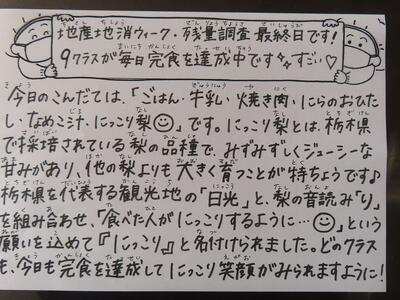 地産地消ウィーク・残量調査 最終日です!
9クラスが毎日完食を達成中です すごい♡
今日のこんだては、「ごはん・牛乳・焼き肉・にらのおひた
し・なめこ汁・にっこり梨☺」です。にっこり梨とは、栃木県
で採培されている梨の品種で、みずみずしくジューシーな
甘みがあり、他の梨よりも大きく育つことが特ちょうです♪
栃木県を代表する観光地の「日光」と、梨の音読み「り」
を組み合わせ、「食べた人がにっこりするように…☺」という
願いを込めて『にっこり』と名付けられました。どのクラス
も、今日も完食を達成してにっこり笑顔がみられますように!